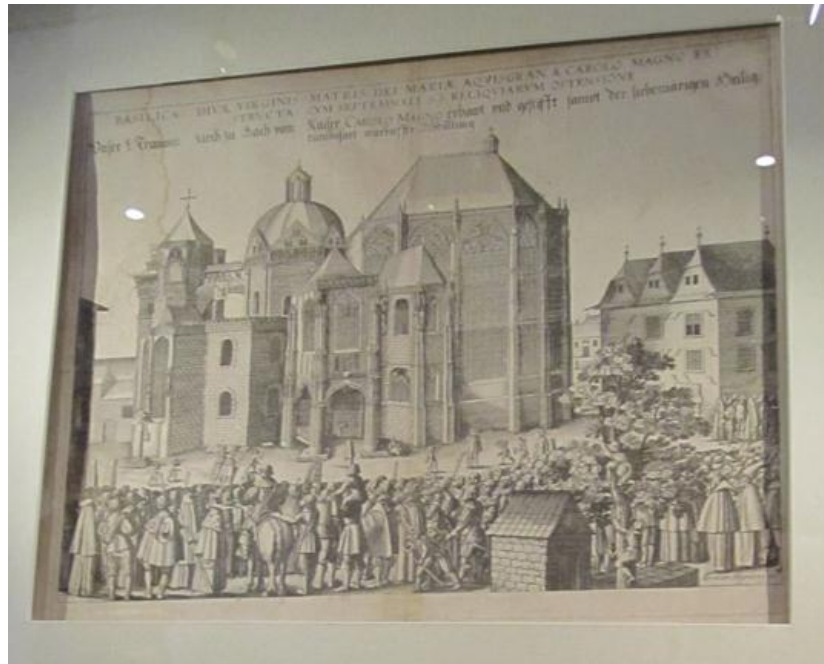 BASILICA DIVÆ VIRGINIS MATRIS DEI MARIÆ AQVISGRAN A CAROLO MAGNO EX
STRVCTA CVM SEPTENNALI RELIQVIARVM OSTENSIONE
Unser L Frawen Kirch zu Aach von Kaiser CAROLO MAGNO erbawt und gestifft sampt der siebenjärigen Heilig